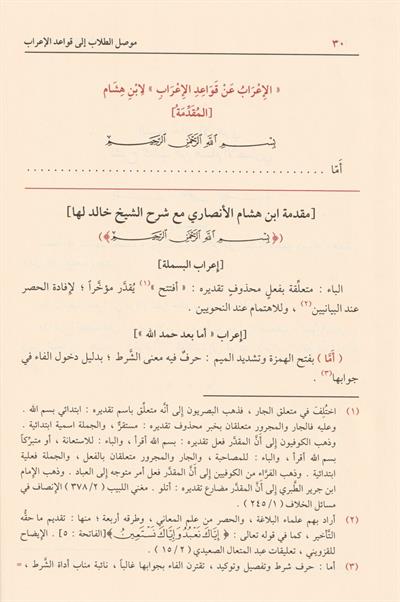 ٣٠ موصل الطلاب إلى قواعد الإعراب
« الإِعْرَابُ عَنْ قَوَاعِدِ الإِعْرَابِ » لِابْنِ هِشَام
[المُقَدِّمَةُ]
بِسْمِ اللَّهِ الرَّحْمَٰنِ الرَّحِيمِ
أَمَّا . . . . . . . . . . . . . . . . . . . . . . . . . . . . . . . . . . . . . . . .
[مقدمة ابن هشام الأنصاري مع شرح الشيخ خالد لها]
(﴿ بِسْمِ اللَّهِ الرَّحْمَٰنِ الرَّحِيمِ ﴾)
[إعراب البسملة]
الباء : متعلِّقة بفعلٍ محذوفٍ تقديره : « أفتتح »(١) يُقدَّر مؤخَّراً ؛ لإفادة الحصر
عند البيانيين(٢) ، وللاهتمام عند النحويين .
[إعراب « أما بعد حمد الله »]
( أَمَّا ) بفتح الهمزة وتشديد الميم : حرفٌ فيه معنى الشَّرط ؛ بدليل دخول الفاء في
جوابها(٣) .
(١) اختُلِفَ في متعلق الجار ، فذهب البصريون إلى أنَّه متعلِّق باسم تقديره : ابتدائي بسم الله .
وعليه فالجار والمجرور متعلقان بخبر محذوف تقديره : مستقرٌ ، والجملة اسمية ابتدائية .
وذهب الكوفيون إلى أنَّ المقدَّر فعل تقديره : بسم الله أقرأ ، والباء : للاستعانة ، أو متبرِّكاً
بسم الله أقرأ ، والباء : للمصاحبة ، والجار والمجرور متعلقان بالفعل ، والجملة فعلية
ابتدائية . وذهب الفرَّاء من الكوفيين إلى أنَّ المقدَّر فعل أمر متوجه إلى العباد . وذهب الإمام
ابن جرير الطَّبري إلى أنَّ المقدَّر مضارع تقديره : أتلو . مغني اللبيب ( ٣٧٨/٢ ) الإنصاف في
مسائل الخلاف ( ٢٤٥/١ ) .
(٢) أراد بهم علماء البلاغة ، والحصر من علم المعاني ، وطرقه أربعة ؛ منها : تقديم ما حقُّه
التَّأخير ، كما في قوله تعالى : ﴿ إِيَّاكَ نَعْبُدُ وَإِيَّاكَ نَسْتَعِينُ ﴾ [الفاتحة : ٥] . الإيضاح
للقزويني ، تعليقات عبد المتعال الصعيدي ( ١٥/٢ ) .
(٣) أما : حرف شرط وتفصيل وتوكيد ، تقترن الفاء بجوابها غالباً ، نائبة مناب أداة الشَّرط ، =